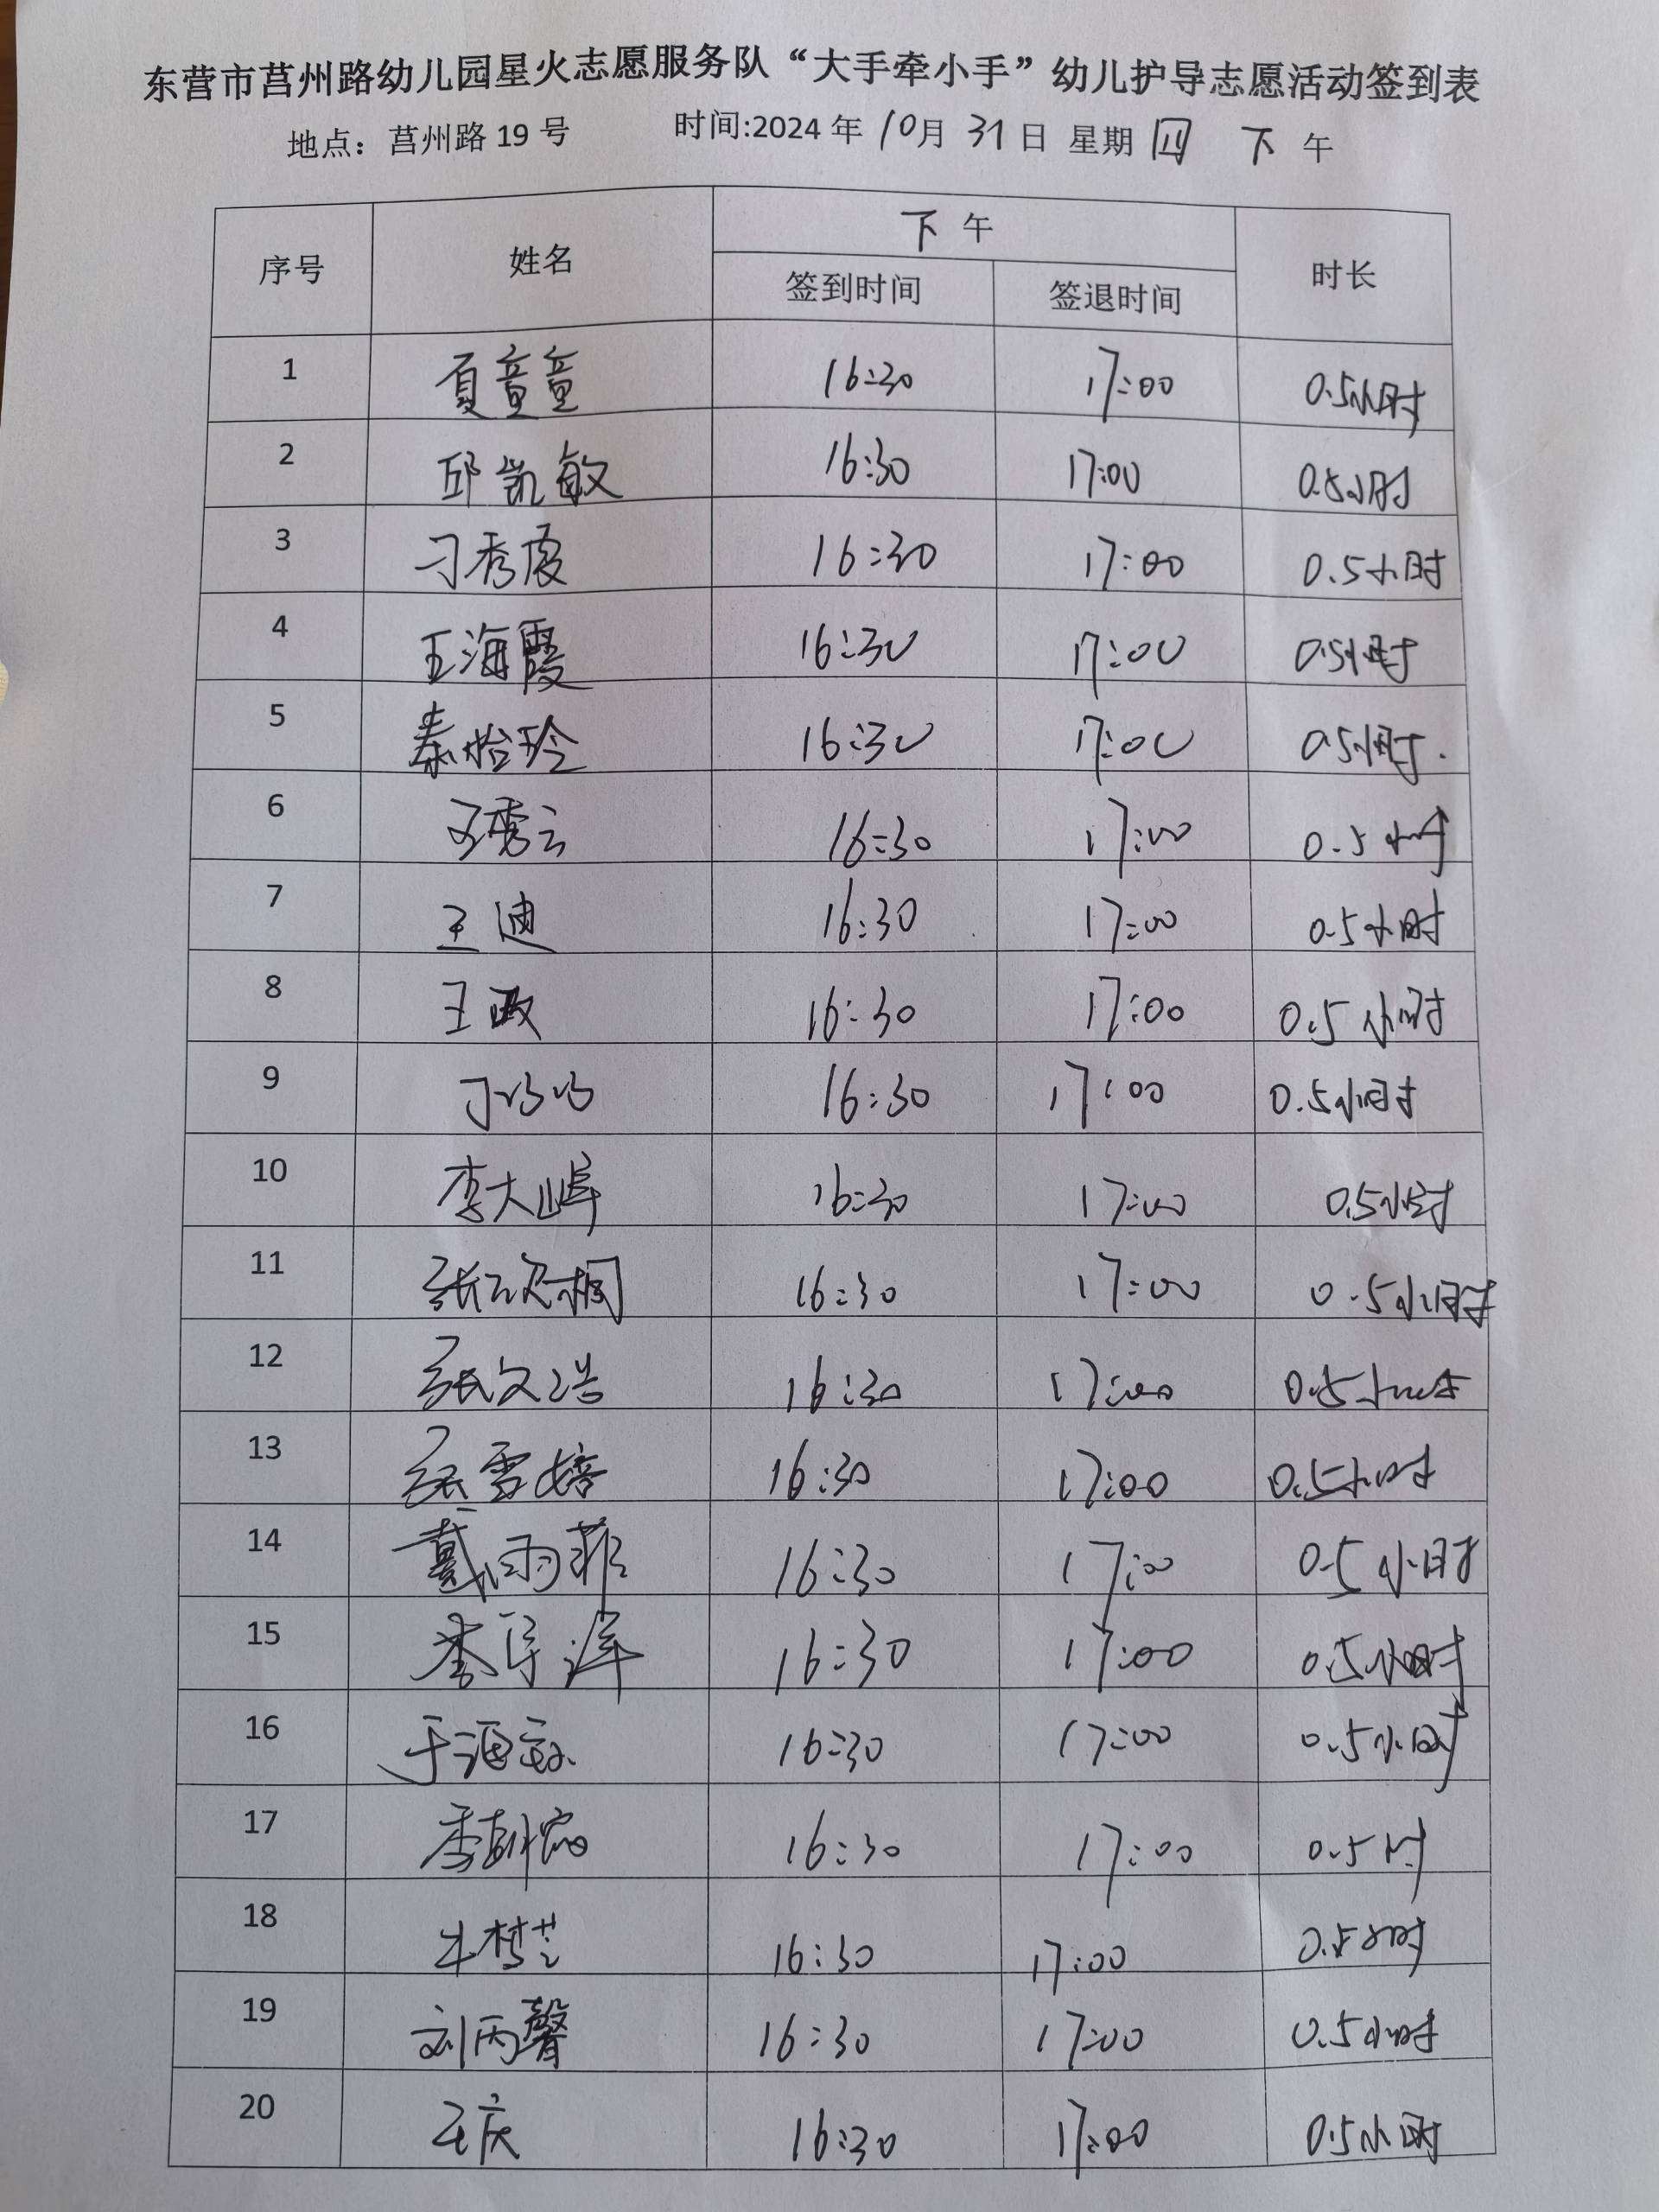 东营市莒州路幼儿园星火志愿服务队“大手牵小手”幼儿护导志愿活动签到表
地点：莒州路 19 号 时间:2024 年 10月 31 日 星期 四 下 午
序号 姓名 下 午 时长
签到时间 签退时间
1 夏童童 16:30 17:00 0.5小时
2 邱凯敏 16:30 17:00 0.5小时
3 刁秀霞 16:30 17:00 0.5小时
4 王海霞 16:30 17:00 0.5小时
5 秦怡玲 16:30 17:00 0.5小时.
6 王秀云 16:30 17:00 0.5小时
7 王迪 16:30 17:00 0.5小时
8 王政 16:30 17:00 0.5小时
9 丁 16:30 17:00 0.5小时
10 李大峰 16:30 17:00 0.5小时
11 张 桐 16:30 17:00 0.5小时
12 张文浩 16:30 17:00 0.5小时
13 张雪婷 16:30 17:00 0.5小时
14 戴雨菲 16:30 17:00 0.5小时
15 李宇洋 16:30 17:00 0.5小时
16 于 16:30 17:00 0.5小时
17 16:30 17:00 0.5时
18 牛梦芸 16:30 17:00 0.5小时
19 刘丙馨 16:30 17:00 0.5小时
20 王庆 16:30 17:00 0.5小时